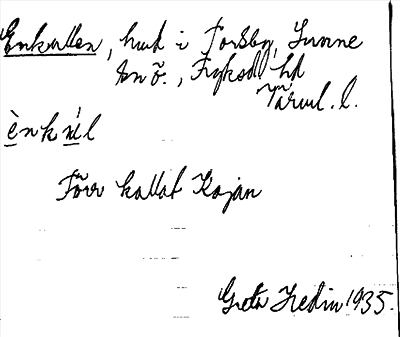 Enkullen, hmd i Torsby, Sunne
sn ö., Fryksd. hd
Värml. l.
ènknl
Förr kallat Kajan
Greta Hedin 1935.